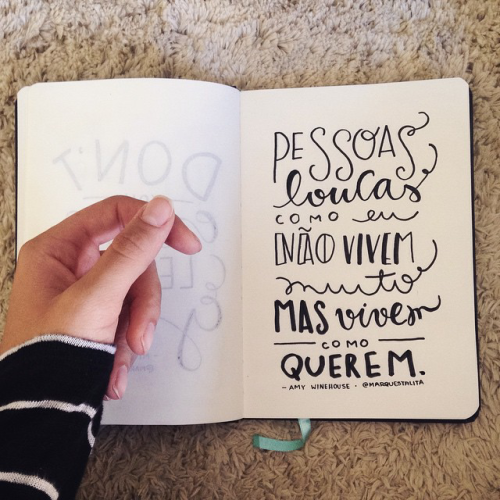 DON'T
PESSOAS
loucas
COMO eu
NÃO VIVEM
muito
MAS vivem
COMO
QUEREM.
- AMY WINEHOUSE - @MARQUESTALITA